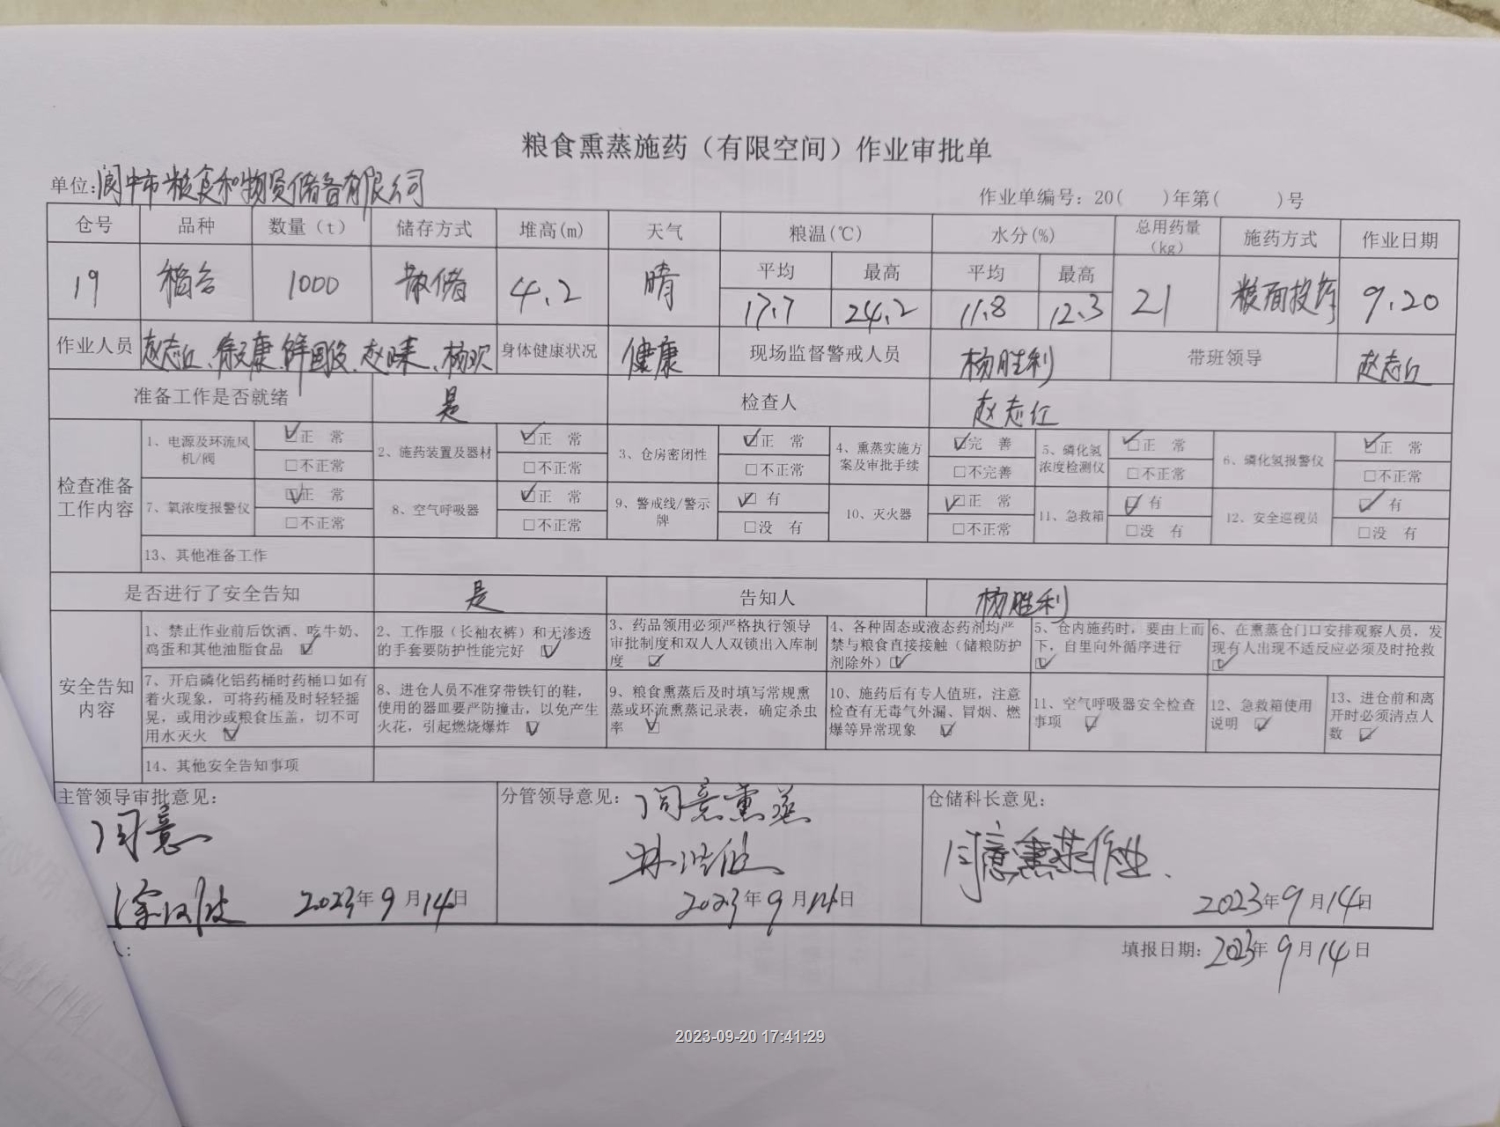 粮食熏蒸施药（有限空间）作业审批单
单位：阆中市粮食和物资储备有限公司
作业单编号：20(    )年第(      )号
仓号 品种 数量（t） 储存方式 堆高(m) 天气 粮温(℃) 水分(%) 总用药量（kg） 施药方式 作业日期
平均 最高 平均 最高
19 稻谷 1000 散储 4.2 晴 17.7 24.2 11.8 12.3 21 粮面投药 9.20
作业人员 赵志红、 身体健康状况 健康 现场监督警戒人员 杨胜利 带班领导 赵志红
准备工作是否就绪 是 检查人 赵志红
检查准备工作内容
1、电源及环流风机/阀 ☑正 常 □不正常
2、施药装置及器材 ☑正 常 □不正常
3、仓房密闭性 ☑正 常 □不正常
4、熏蒸实施方案及审批手续 ☑完 善 □不完善
5、磷化氢浓度检测仪 ☑正 常 □不正常
6、磷化氢报警仪 ☑正 常 □不正常
7、氧浓度报警仪 ☑正 常 □不正常
8、空气呼吸器 ☑正 常 □不正常
9、警戒线/警示牌 ☑有 □没 有
10、灭火器 ☑正 常 □不正常
11、急救箱 ☑有 □没 有
12、安全巡视员 ☑有 □没 有
13、其他准备工作
是否进行了安全告知 是 告知人 杨胜利
安全告知内容
1、禁止作业前后饮酒、吃牛奶、鸡蛋和其他油脂食品 ☑
2、工作服（长袖衣裤）和无渗透的手套要防护性能完好 ☑
3、药品领用必须严格执行领导审批制度和双人双锁出入库制度 ☑
4、各种固态或液态药剂均严禁与粮食直接接触（储粮防护剂除外）☑
5、仓内施药时，要由上而下，自里向外循序进行 ☑
6、在熏蒸仓门口安排观察人员，发现有人出现不适反应必须及时抢救 ☑
7、开启磷化铝药桶时药桶口如有着火现象，可将药桶及时轻轻摇晃，或用沙或粮食压盖，切不可用水灭火 ☑
8、进仓人员不准穿带铁钉的鞋，使用的器皿要严防撞击，以免产生火花，引起燃烧爆炸 ☑
9、粮食熏蒸后及时填写常规熏蒸或环流熏蒸记录表，确定杀虫率 ☑
10、施药后有专人值班，注意检查有无毒气外漏、冒烟、燃爆等异常现象 ☑
11、空气呼吸器安全检查事项 ☑
12、急救箱使用说明 ☑
13、进仓前和离开时必须清点人数 ☑
14、其他安全告知事项
主管领导审批意见：
同意
2023年9月14日
分管领导意见：同意熏蒸
2023年9月14日
仓储科长意见：
同意熏蒸作业.
2023年9月14日
人：
填报日期：2023年9月14日
2023-09-20 17:41:29